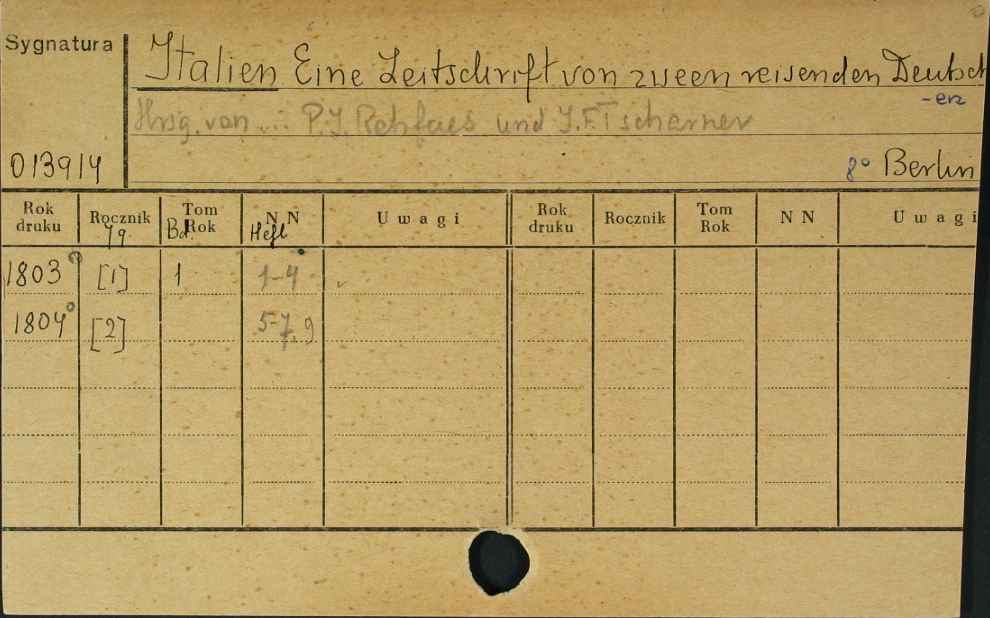 Sygnatura
Italien Eine Zeitschrift von zween reisenden Deutsch
-en
Hrsg. von ... P. J. Rehfues und J. F. Tscharner
013914
8° Berlin
Rok druku Rocznik Tom Rok NN Uwagi Rok druku Rocznik Tom Rok NN Uwagi
Jg. Bd. Heft
1803 [1] 1 1-4
1804 [2] 5-7, 9